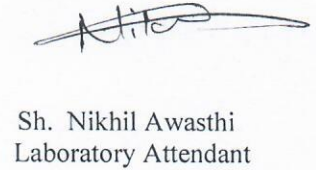 Sh. Nikhil Awasthi
Laboratory Attendant